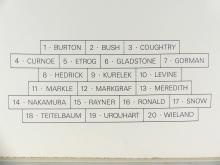 1 · BURTON 2 · BUSH 3 · COUGHTRY
4 · CURNOE 5 · ETROG 6 · GLADSTONE 7 · GORMAN
8 · HEDRICK 9 · KURELEK 10 · LEVINE
11 · MARKLE 12 · MARKGRAF 13 · MEREDITH
14 · NAKAMURA 15 · RAYNER 16 · RONALD 17 · SNOW
18 · TEITELBAUM 19 · URQUHART 20 · WIELAND